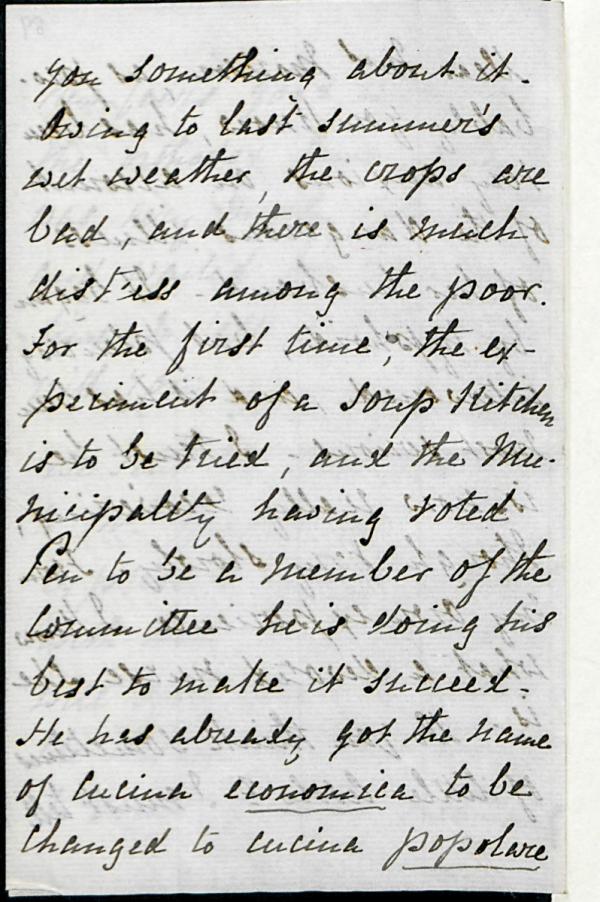 you something about it.
Owing to last summer's
wet weather, the crops are
bad, and there is much
distress among the poor.
For the first time, the ex-
periment of a Soup Kitchen
is to be tried, and the Mu-
nicipality having voted
Pen to be a member of the
Committee he is doing his
best to make it succeed.
He has already got the name
of cucina economica to be
changed to cucina popolare